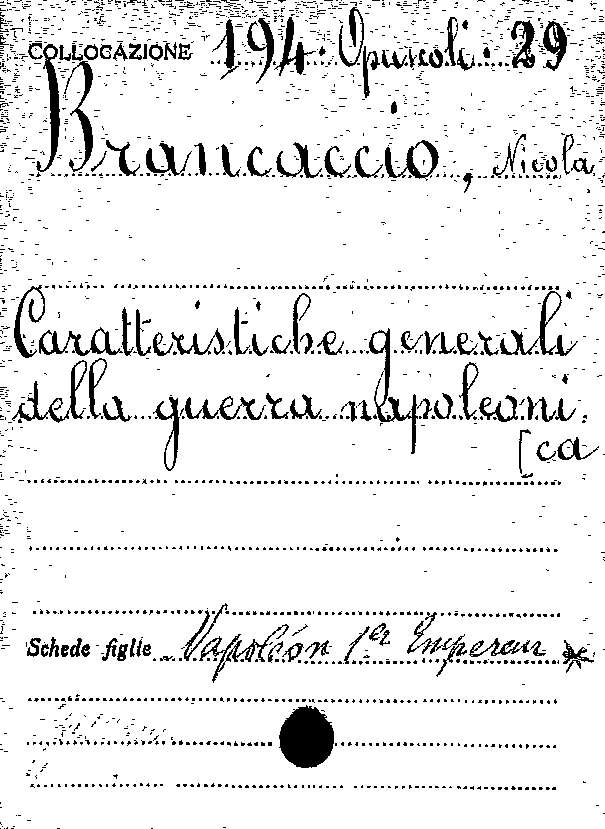 COLLOCAZIONE 194. Opuscoli. 29
Brancaccio, Nicola
Caratteristiche generali
della guerra napoleoni.
[ca
Schede figlie Napoléon 1er Empereur *